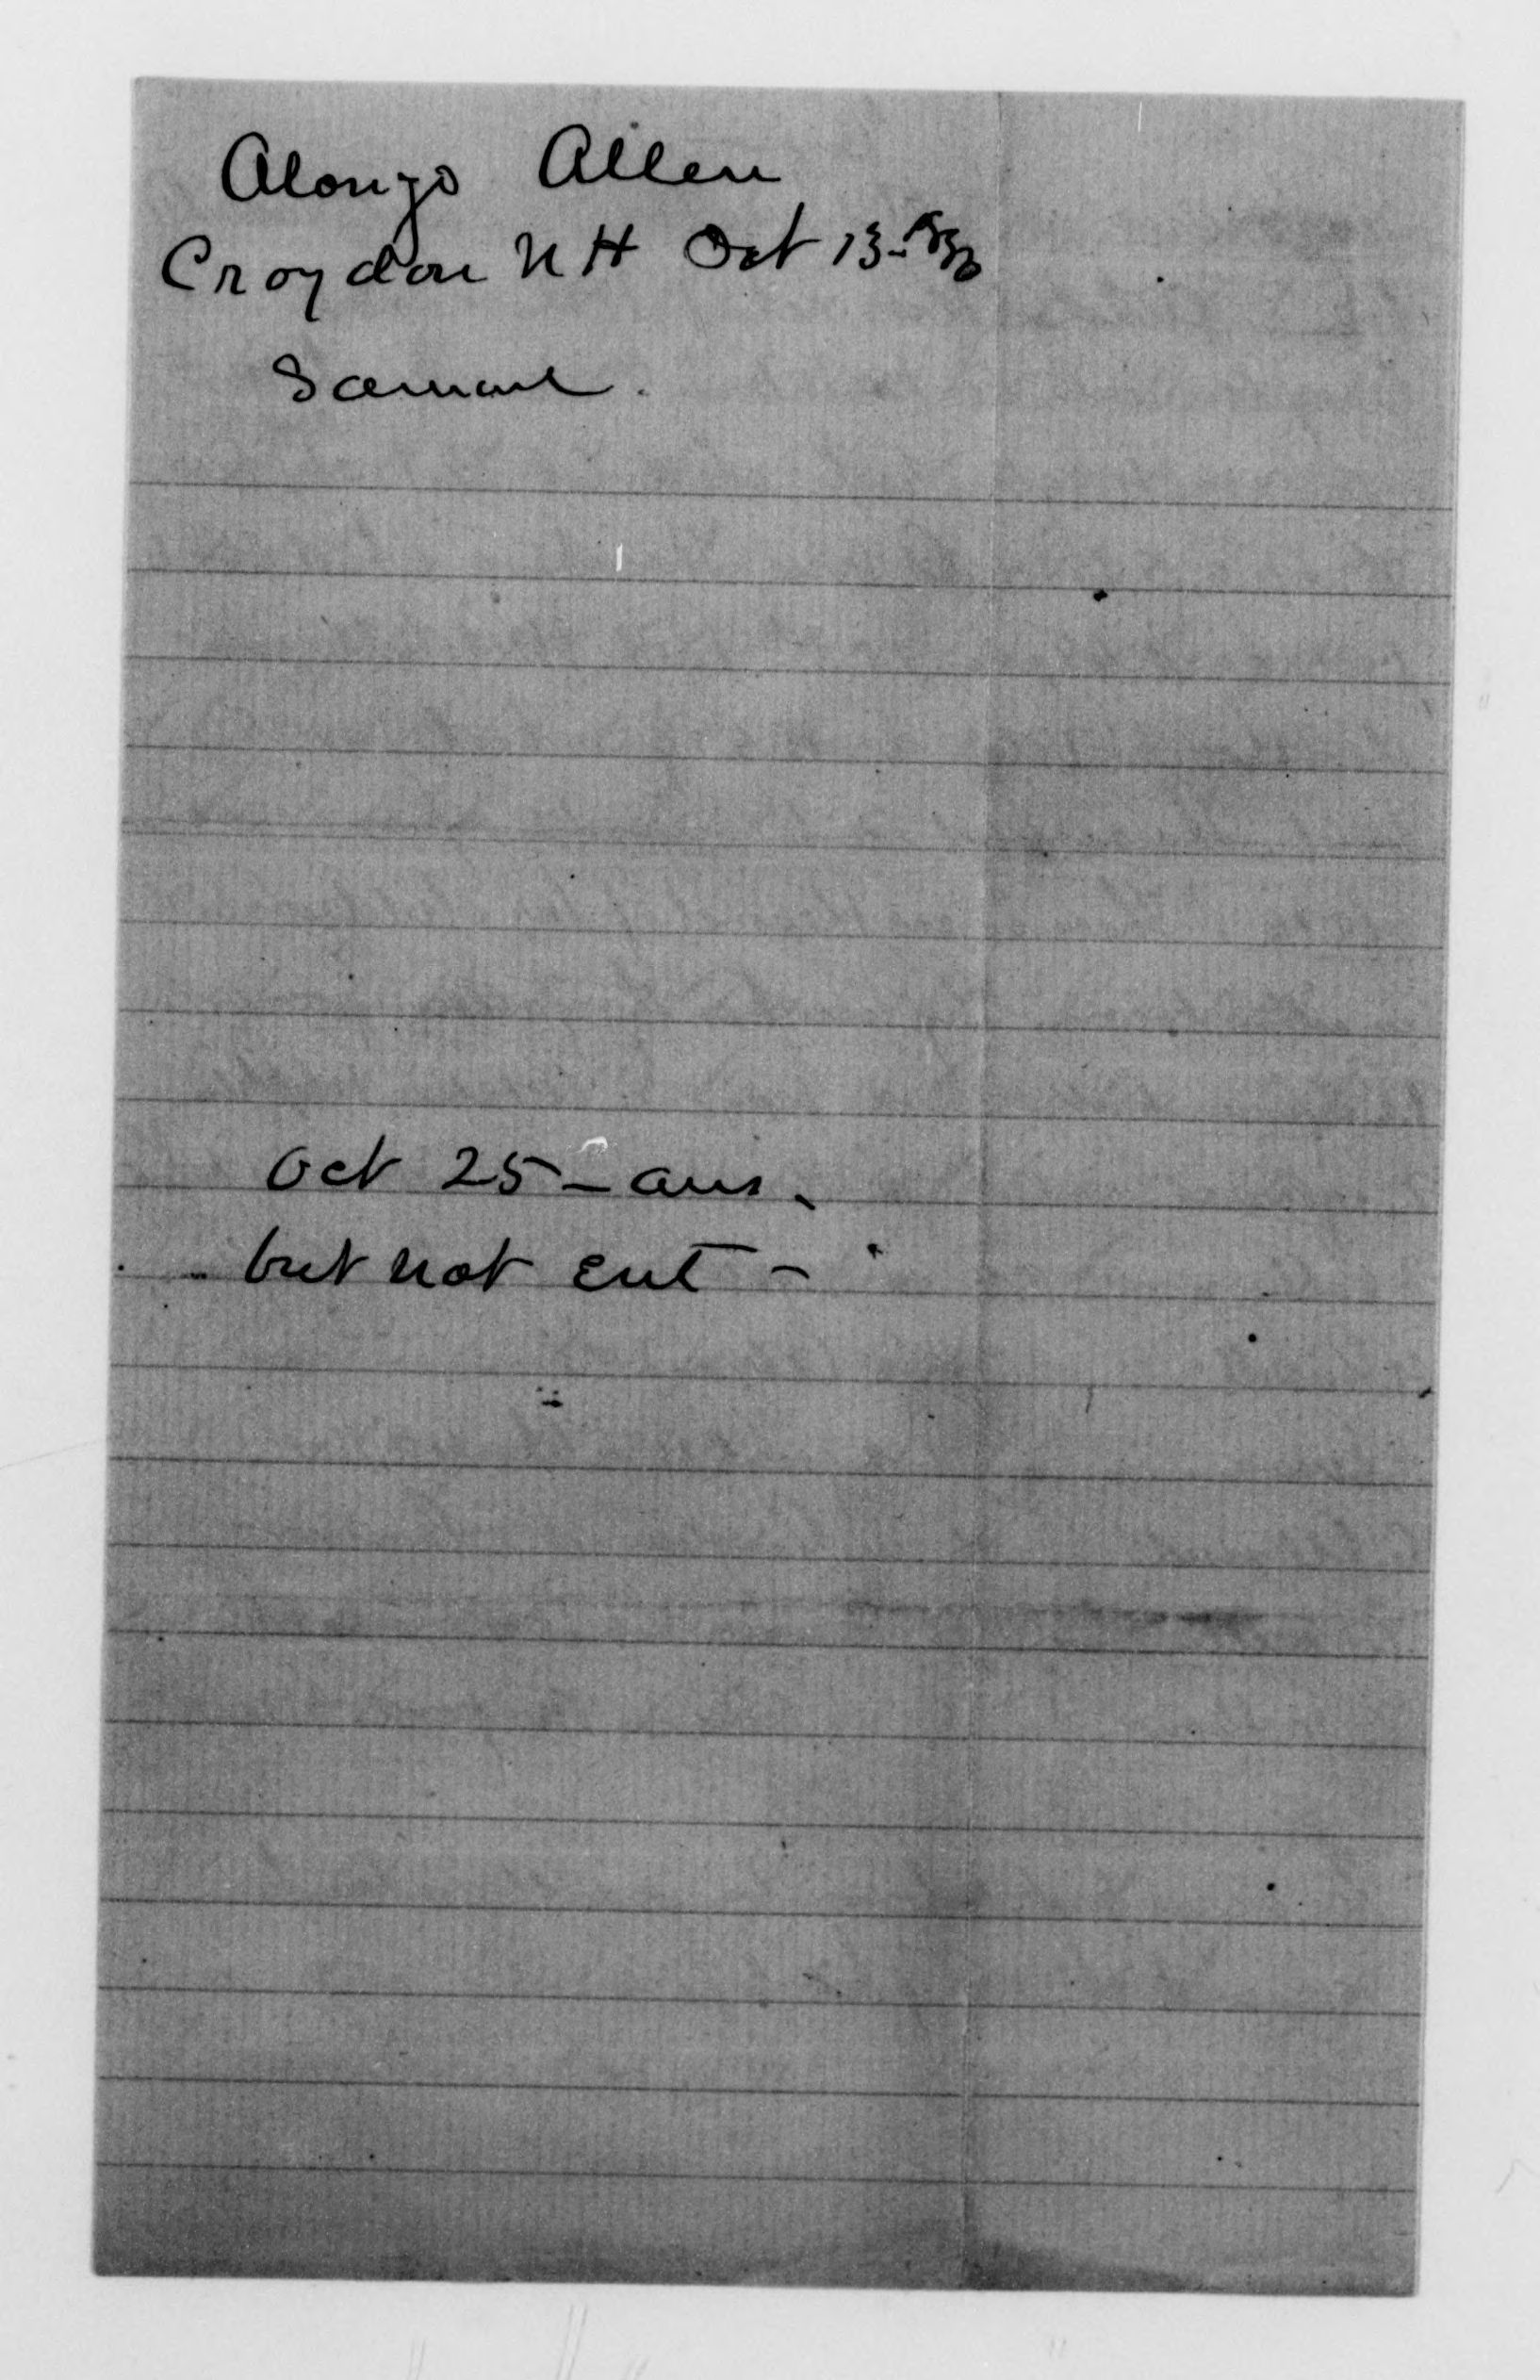 Alonzo Allen
Croydon N H Oct 13-
Samuel
Oct 25 - ans.
but not ent -